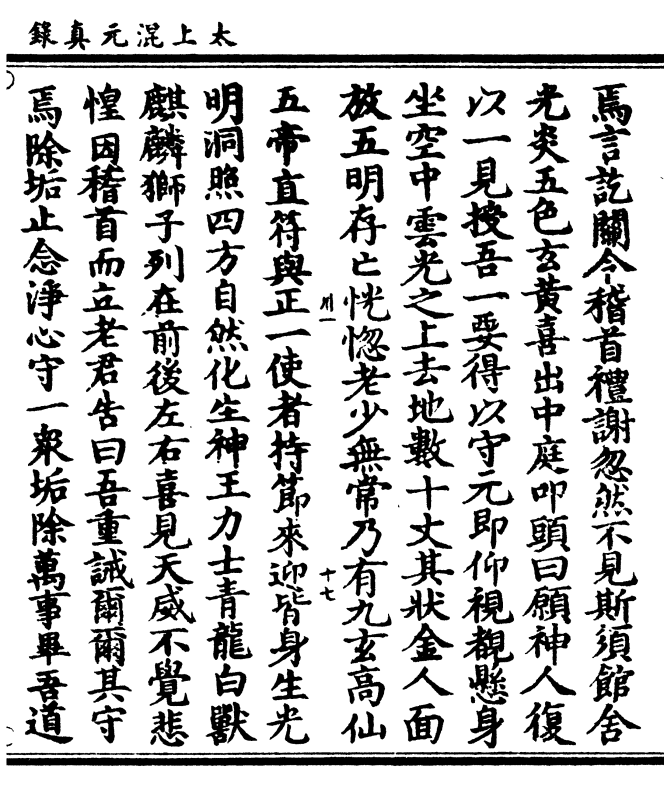 太上混元真錄
焉言訖關令稽首禮謝忽然不見斯須館舍
光炎五色玄黃喜出中庭叩頭曰願神人復
以一見授吾一要得以守元即仰視覩懸身
坐空中雲光之上去地數十丈其狀金人面
放五明存亡恍惚老少無常乃有九玄高仙
川一
十七
五帝直符與正一使者持節來迎皆身生光
明洞照四方自然化生神王力士青龍白獸
麒麟獅子列在前後左右喜見天威不覺悲
惶因稽首而立老君告曰吾重誡爾爾其守
焉除垢止念淨心守一衆垢除萬事畢吾道